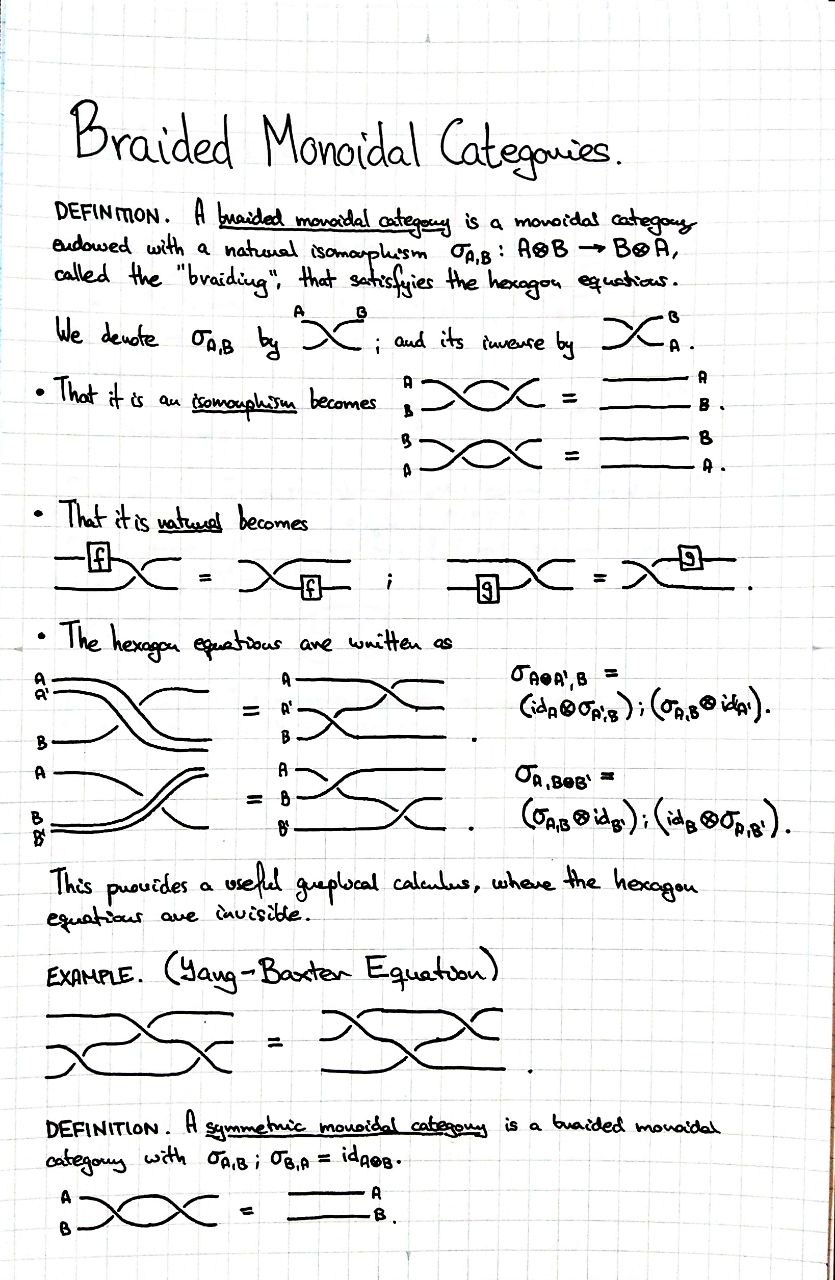 Braided Monoidal Categories.
DEFINITION. A braided monoidal category is a monoidal category
endowed with a natural isomorphism σ_{A,B} : A⊗B → B⊗A,
called the "braiding", that satisfyies the hexagon equations.
We denote σ_{A,B} by A B ; and its inverse by B A .
• That it is an isomorphism becomes A B = A B .
B A = B A .
• That it is natural becomes
f = f ; g = g .
• The hexagon equations are written as
A A' B = A A' B . σ_{A⊗A',B} =
(id_A⊗σ_{A',B}) ; (σ_{A,B}⊗id_{A'}).
A B B' = A B B' . σ_{A,B⊗B'} =
(σ_{A,B}⊗id_{B'}) ; (id_B⊗σ_{A,B'}).
This provides a useful graphical calculus, where the hexagon
equations are invisible.
EXAMPLE. (Yang-Baxter Equation)
= .
DEFINITION. A symmetric monoidal category is a braided monoidal
category with σ_{A,B} ; σ_{B,A} = id_{A⊗B}.
A B = A B .